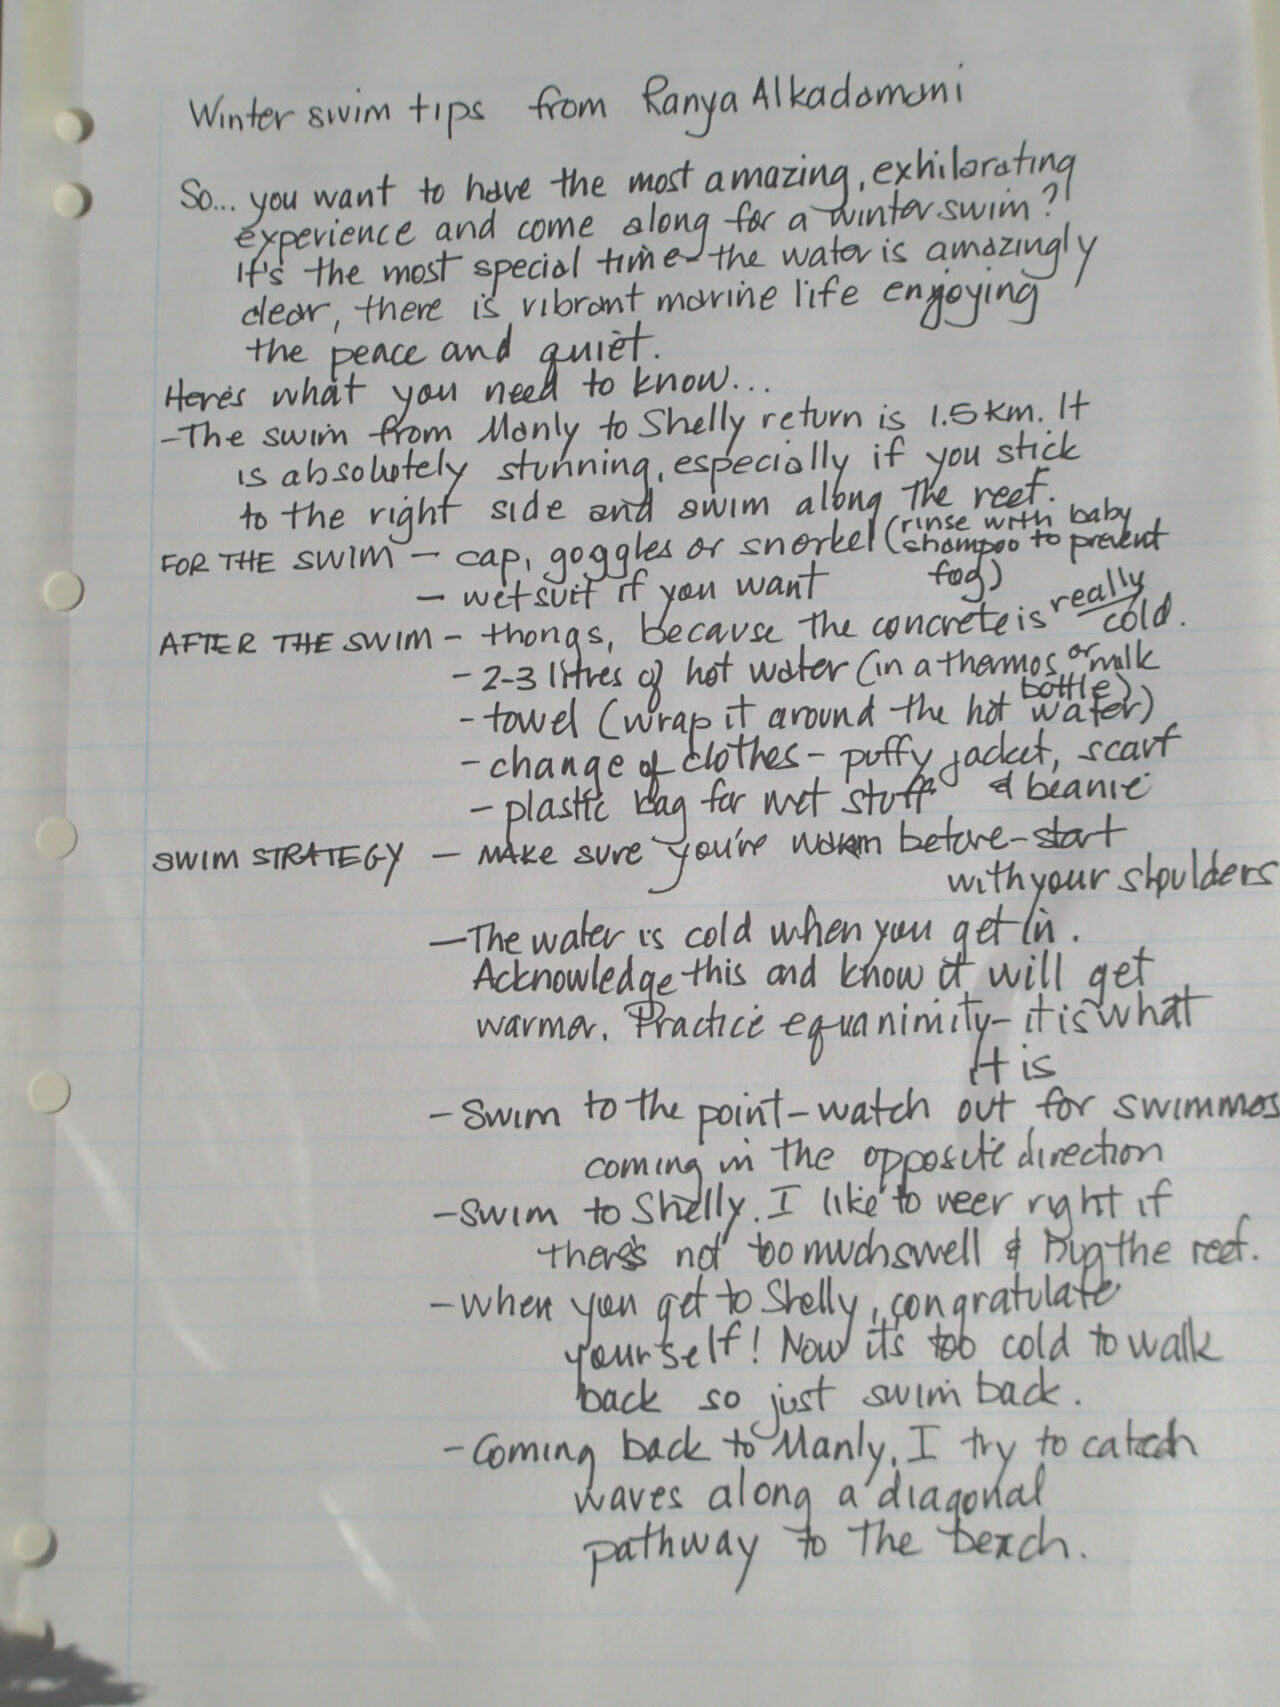 Winter swim tips from Ranya Alkadamani
So... you want to have the most amazing, exhilarating
experience and come along for a winter swim?
It's the most special time - the water is amazingly
clear, there is vibrant marine life enjoying
the peace and quiet.
Here's what you need to know...
- The swim from Manly to Shelly return is 1.5 km. It
is absolutely stunning, especially if you stick
to the right side and swim along the reef.
FOR THE SWIM - cap, goggles or snorkel (rinse with baby
shampoo to prevent
fog)
- wetsuit if you want
AFTER THE SWIM - thongs, because the concrete is really
cold.
- 2-3 litres of hot water (in a thermos or milk
bottle)
- towel (wrap it around the hot water)
- change of clothes - puffy jacket, scarf
& beanie
- plastic bag for wet stuff
SWIM STRATEGY - MAKE sure you're warm before - start
with your shoulders
- The water is cold when you get in.
Acknowledge this and know it will get
warmer. Practice equanimity - it is what
it is
- Swim to the point - watch out for swimmers
coming in the opposite direction
- Swim to Shelly. I like to veer right if
there's not too much swell & hug the reef.
- When you get to Shelly, congratulate
yourself! Now it's too cold to walk
back so just swim back.
- Coming back to Manly, I try to catch
waves along a diagonal
pathway to the beach.